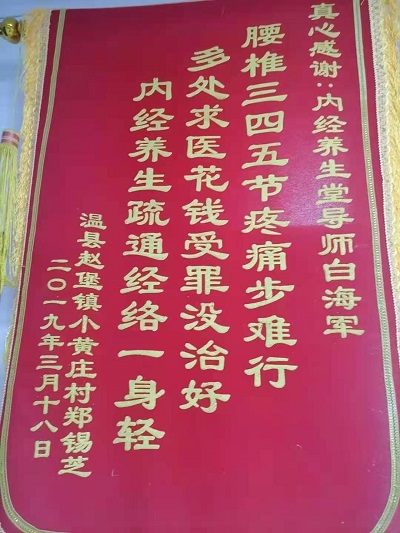 真心感谢:内经养生堂导师白海军
腰椎三四五节疼痛步难行
多处求医花钱受罪没治好
内经养生疏通经络一身轻
温县赵堡镇小黄庄村郑锡芝
二〇一九年三月十八日